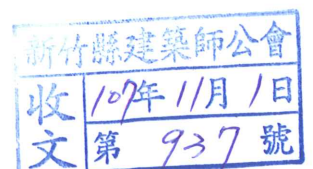 新竹縣建築師公會
收文
107年11月1日
第 937 號